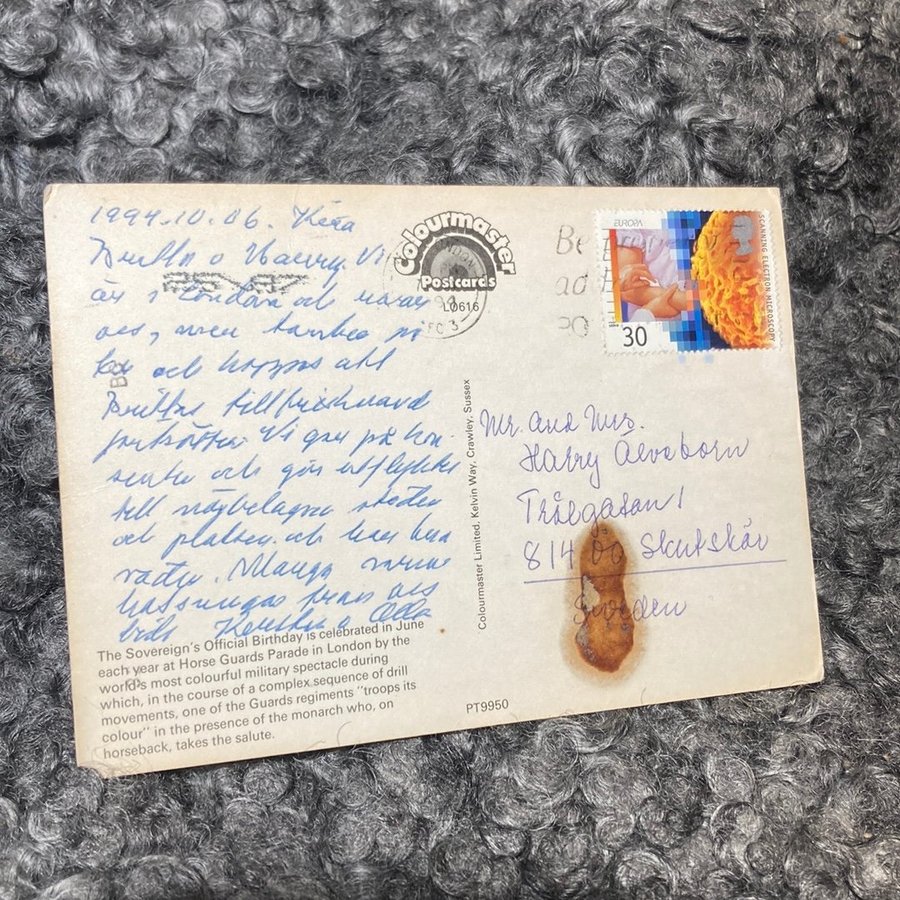 1994.10.06. Kära
Britta o Harry. Vi
är i London och roar
oss, men tänker på
Er och hoppas att
Brittas tillfrisknand
fortsätter Vi går på kon-
serter och gör utflykter
till närbelagna städer
och platser och har bra
väder. Många varma
hälsningar från oss
båda Kerstin o Olla
The Sovereign's Official Birthday is celebrated in June
each year at Horse Guards Parade in London by the
world's most colourful military spectacle during
which, in the course of a complex sequence of drill
movements, one of the Guards regiments "troops its
colour" in the presence of the monarch who, on
horseback, takes the salute.
Colourmaster
Postcards
LO616
Colourmaster Limited, Kelvin Way, Crawley, Sussex
PT9950
EUROPA
SCANNING ELECTRON MICROSCOPY
30
Be
ad
Mr. and Mrs.
Harry Alveborn
Trålgatan 1
814 00 Skutskär
Sweden